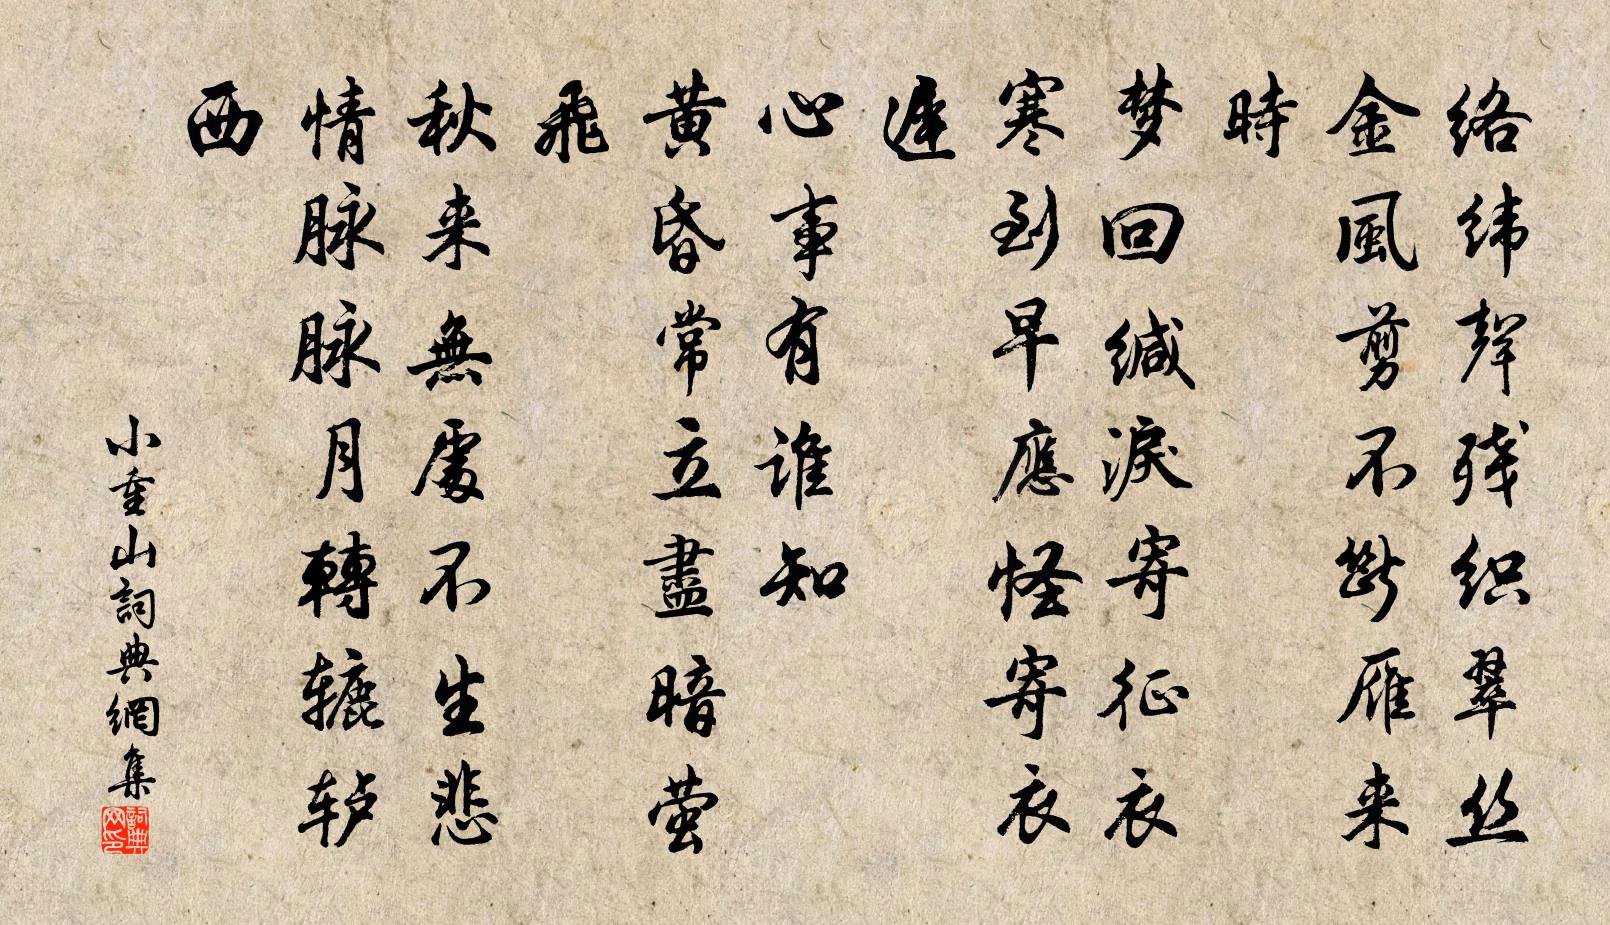 络纬聲残织翠丝
金風剪不斷雁来
時
梦回缄淚寄征衣
寒到早應怪寄衣
遲
心事有谁知
黄昏常立盡暗萤
飛
秋来無處不生悲
情脉脉月轉辘轳
西
小重山詞典網集
詞典网印